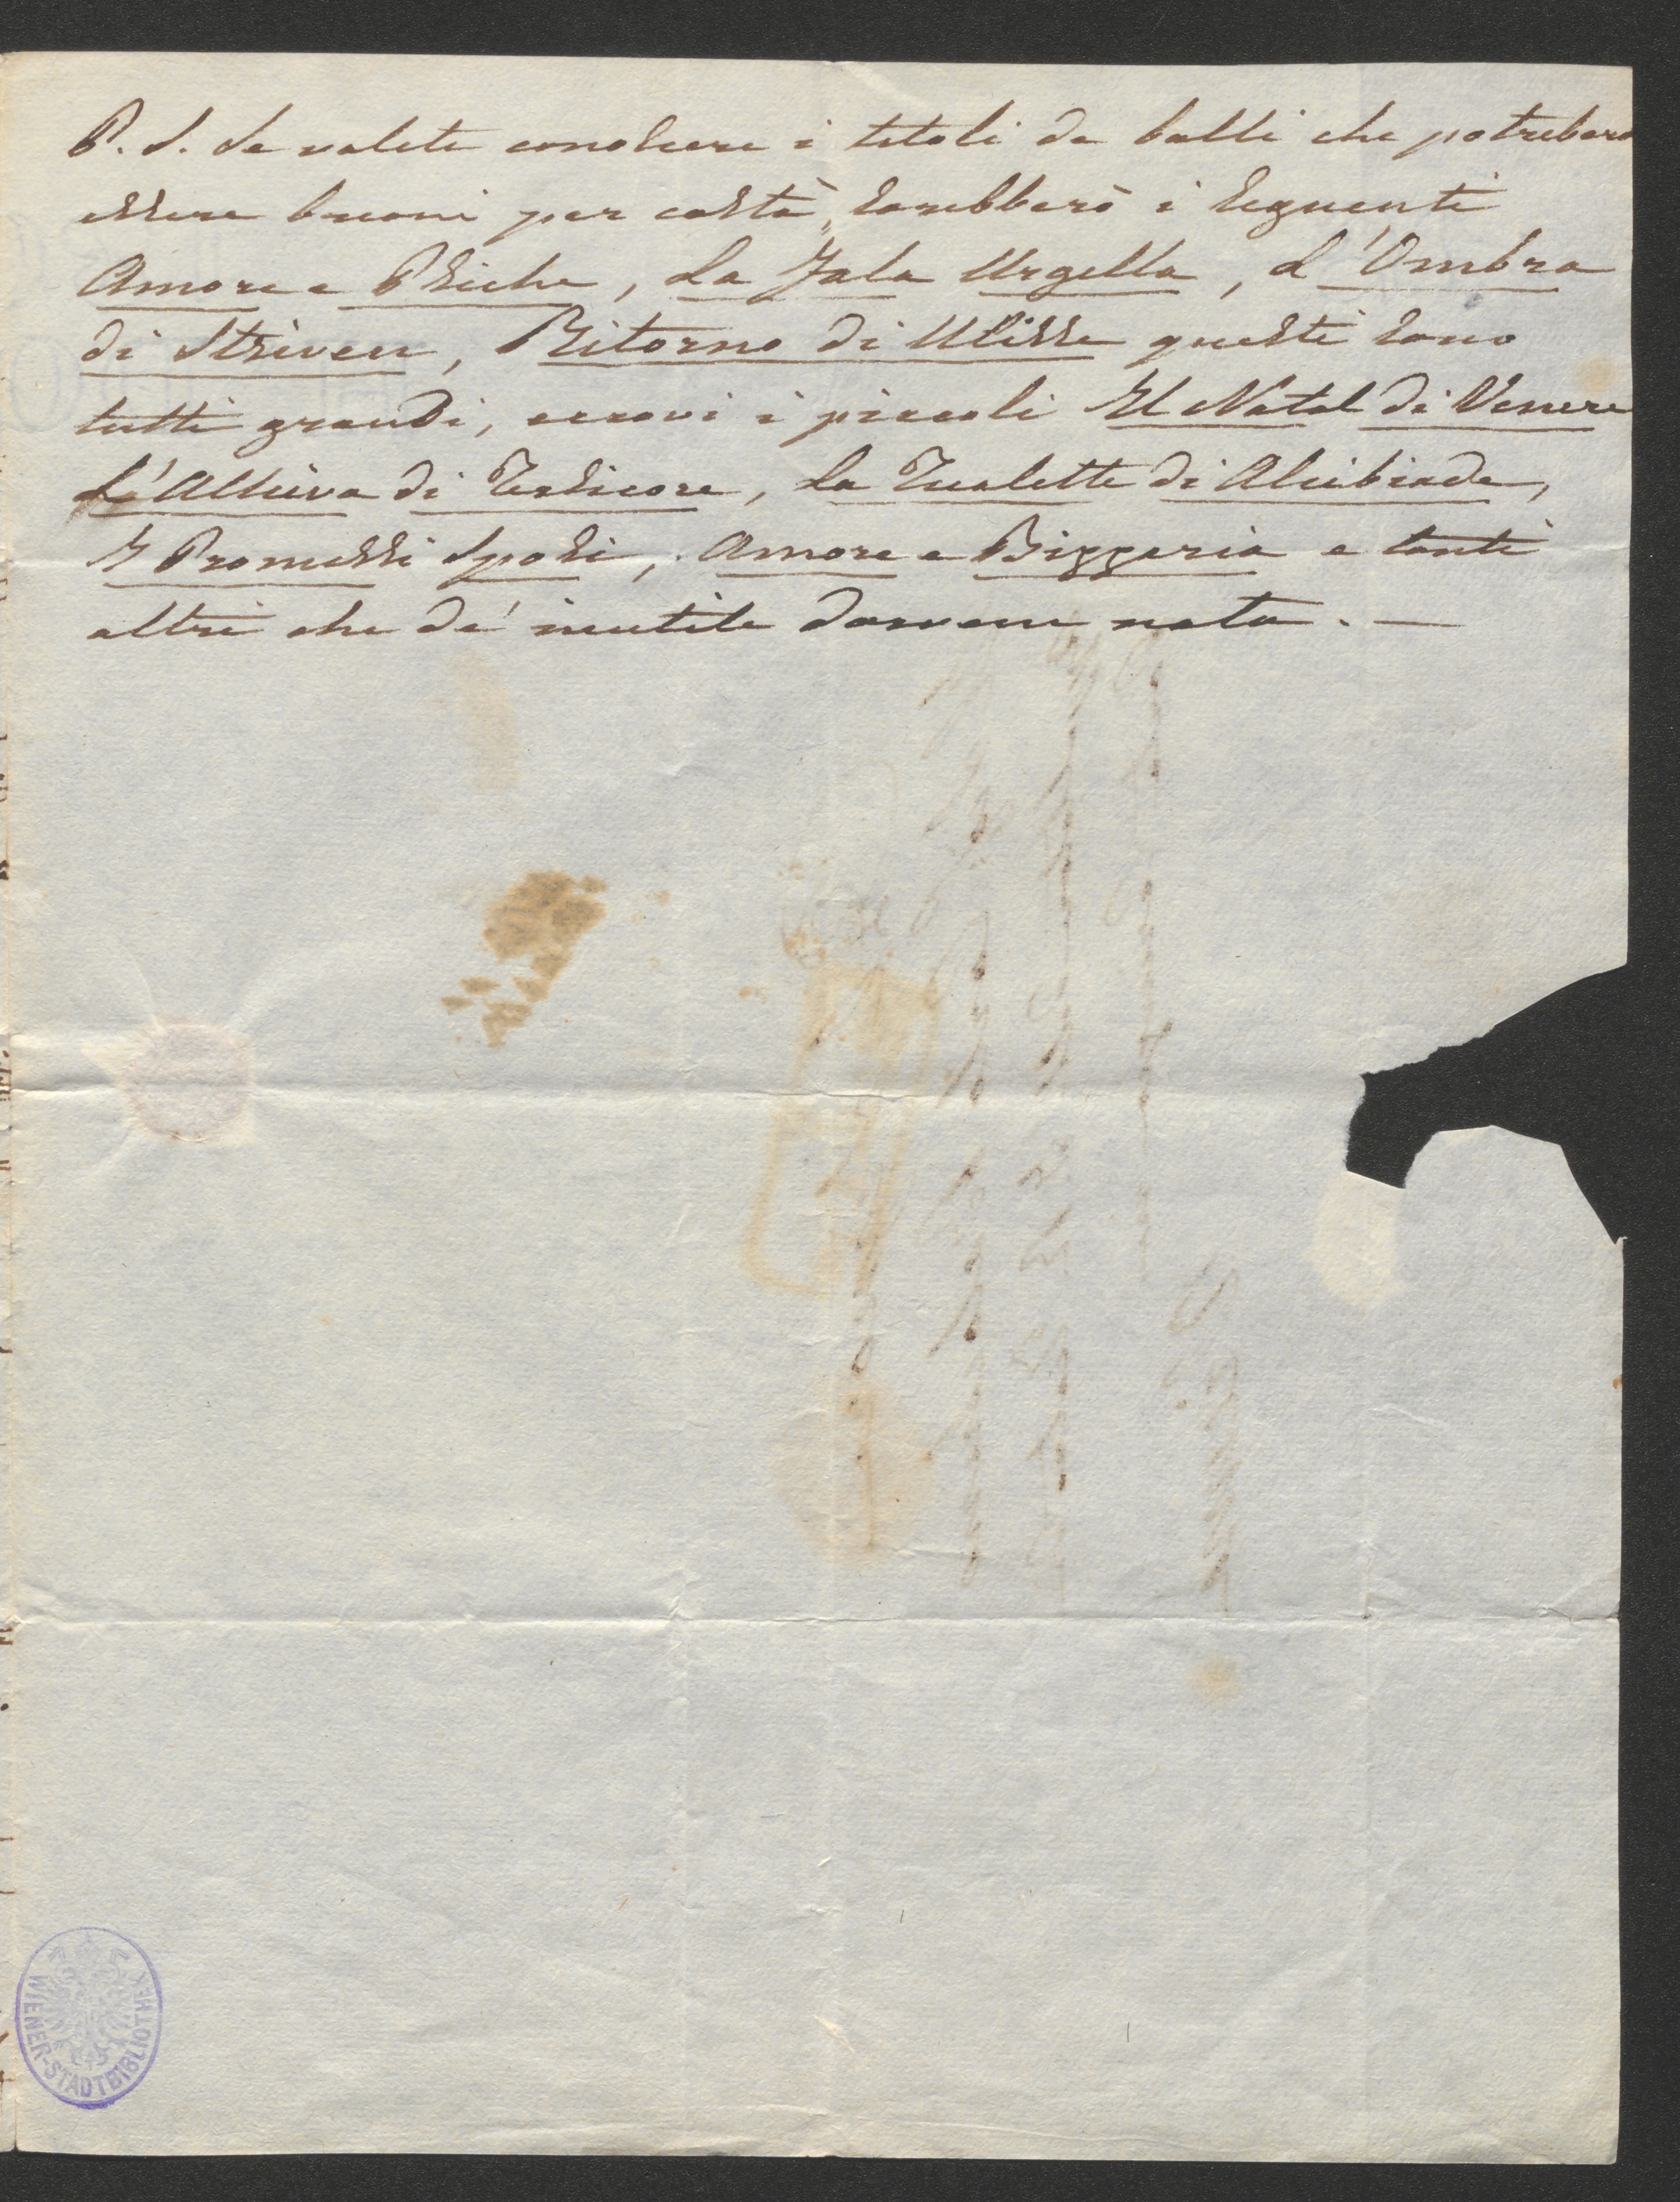 P. S. Se volete conoscere i titoli de balli che potrebero
essere buoni per costà, sarebberò i seguenti
Amore e Psiche, La Fata Urgella, L'Ombra
di Striven, Ritorno di Ulisse questi sono
tutti grandi, eccovi i piccoli Il Natal di Venere
L'Allieva di Tersicore, La Tualette di Alcibiade,
I Promessi Sposi, Amore e Bizzaria e tanti
altri che dé inutile darvene nota. —
WIENER-STADTBIBLIOTHEK